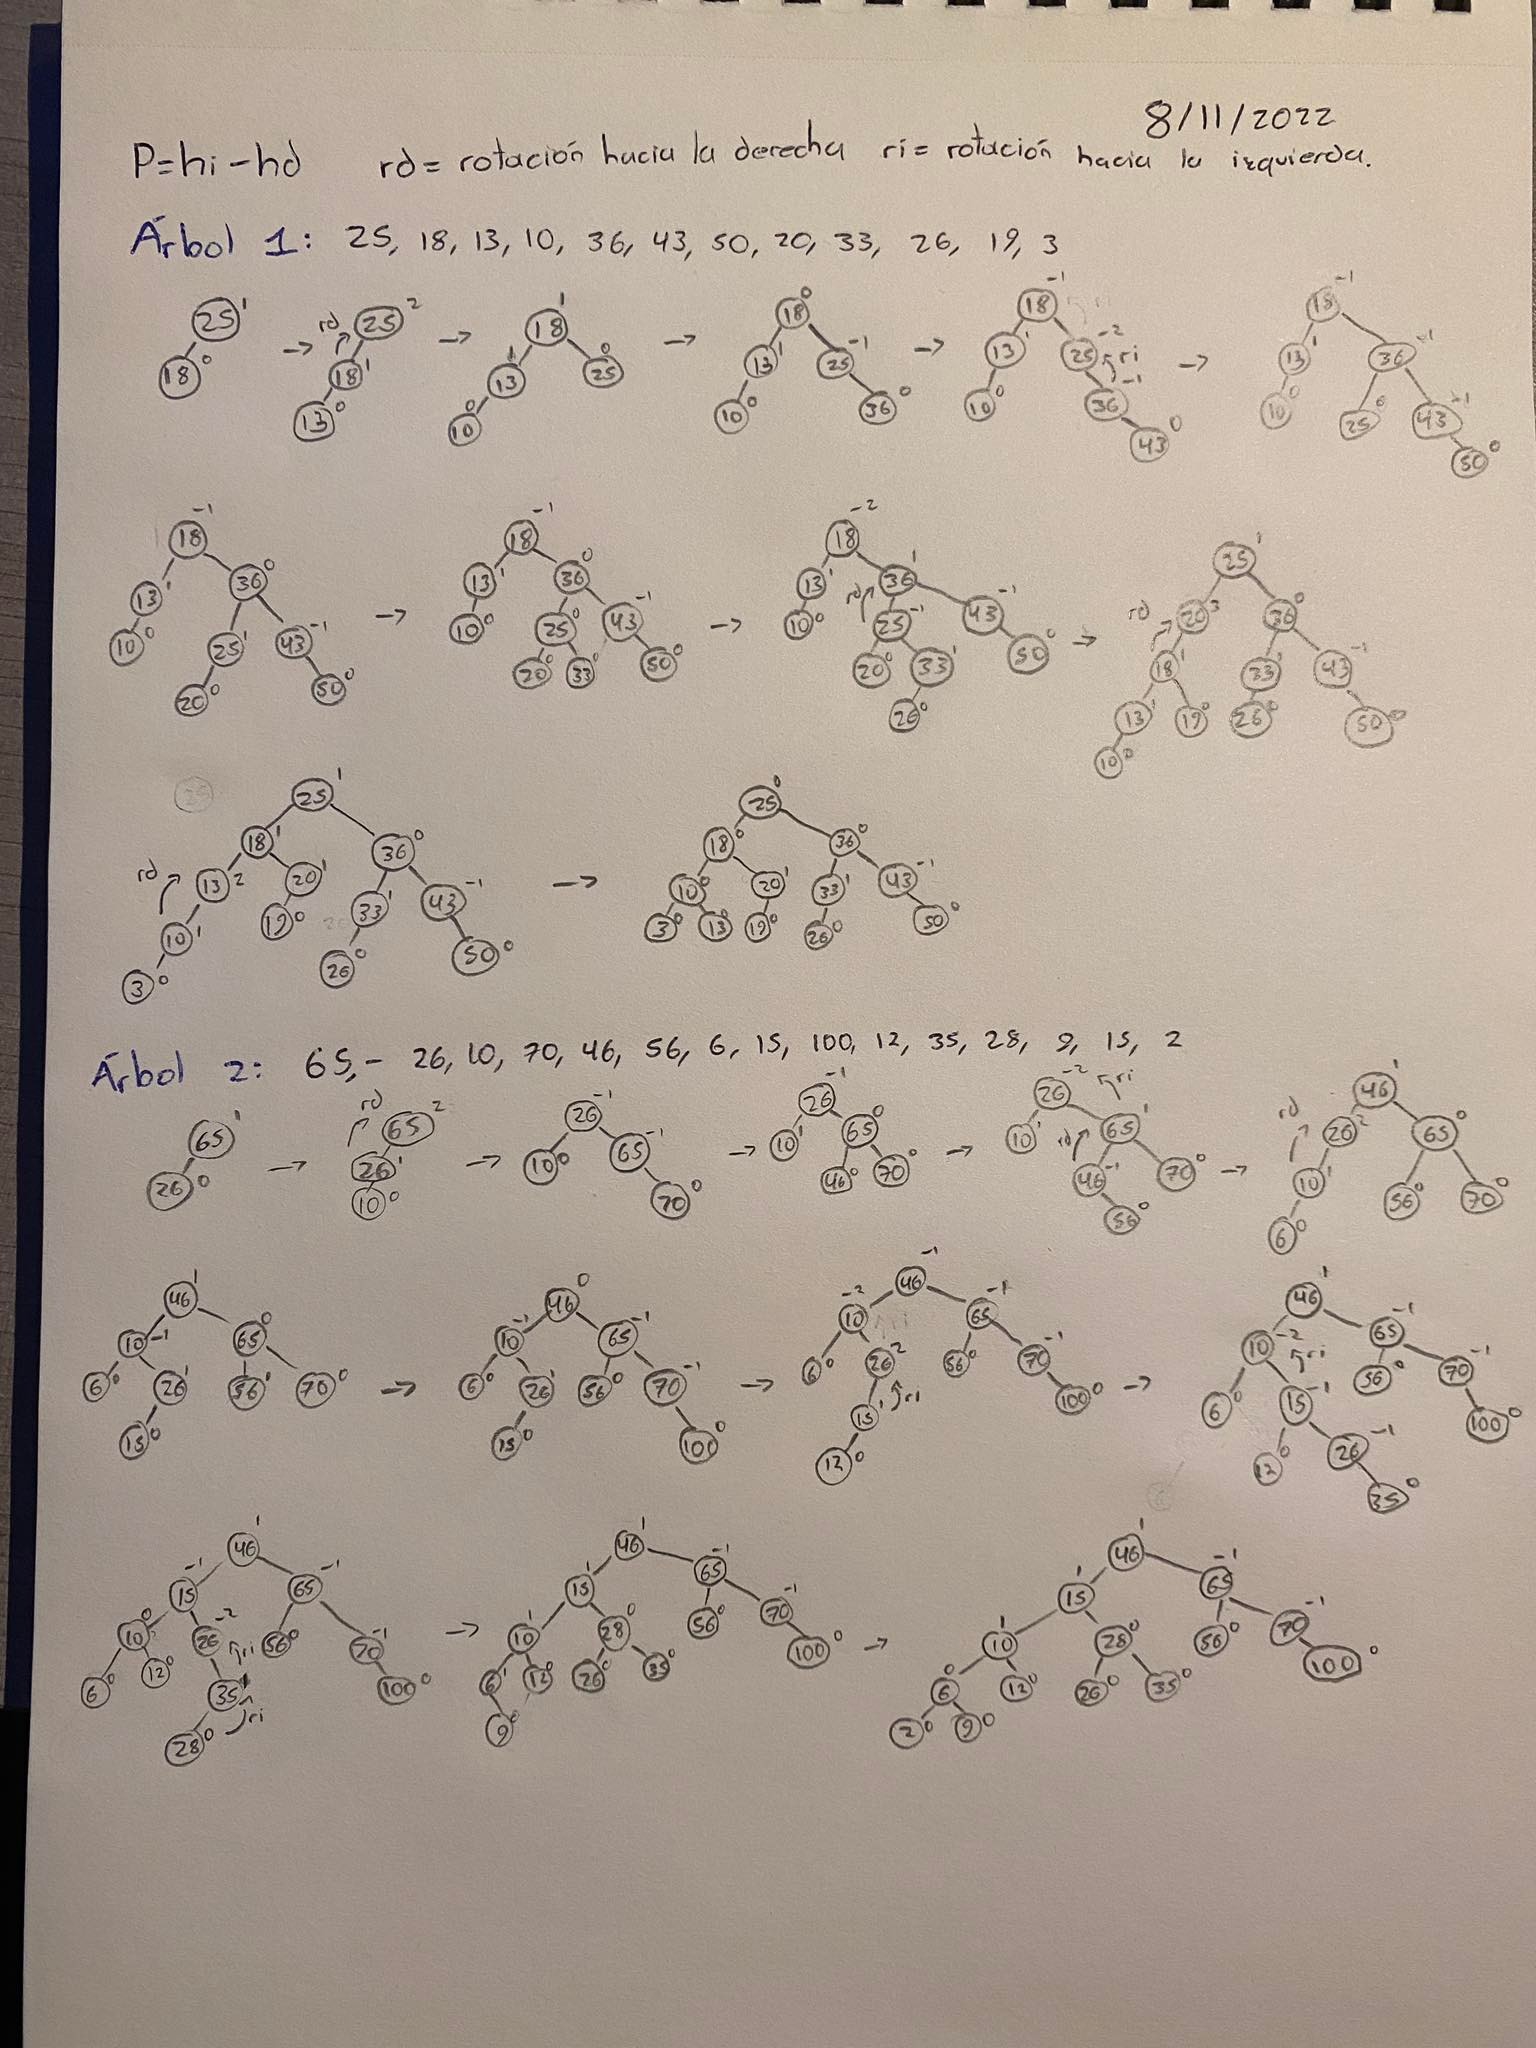 8/11/2022
P=hi-hd rd= rotación hacia la derecha ri= rotación hacia la izquierda.
Árbol 1: 25, 18, 13, 10, 36, 43, 50, 20, 33, 26, 19, 3
25 1 18 0 → rd 25 2 18 1 13 0 → 18 1 13 1 25 0 10 0 → 18 0 13 1 25 -1 10 0 36 0 → 18 -1 13 1 25 -2 ri 10 0 36 -1 43 0 → 18 -1 13 1 36 -1 10 0 25 0 43 -1 50 0
18 -1 13 1 36 0 10 0 25 1 43 -1 20 0 50 0 → 18 -1 13 1 36 0 10 0 25 0 43 -1 20 0 33 0 50 0 → 18 -2 13 1 rd 36 1 10 0 25 -1 43 -1 20 0 33 1 50 0 26 0 → 25 1 rd 20 3 36 0 18 1 33 1 43 -1 13 1 19 0 26 0 50 0 10 0
25 1 18 1 36 0 rd 13 2 20 1 33 1 43 -1 10 1 19 0 26 0 50 0 3 0 → 25 0 18 0 36 0 10 0 20 1 33 1 43 -1 3 0 13 0 19 0 26 0 50 0
Árbol 2: 65,- 26, 10, 70, 46, 56, 6, 15, 100, 12, 35, 28, 9, 15, 2
65 1 26 0 → rd 65 2 26 1 10 0 → 26 -1 10 0 65 -1 70 0 → 26 -1 10 1 65 0 46 0 70 0 → 26 -2 ri 10 1 rd 65 1 46 -1 70 0 56 0 → 46 1 rd 26 2 65 0 10 1 56 0 70 0 6 0
46 1 10 -1 65 0 6 0 26 1 56 1 70 0 15 0 → 46 0 10 -1 65 -1 6 0 26 1 56 0 70 -1 15 0 100 0 → 46 -1 10 -2 65 -1 6 0 26 2 56 0 70 -1 15 1 ri 100 0 12 0 → 46 1 10 -2 ri 65 -1 6 0 15 -1 56 0 70 -1 12 0 26 -1 100 0 35 0
46 1 15 -1 65 -1 10 0 26 -2 ri 56 0 70 -1 6 0 12 0 35 1 ri 100 0 28 0 → 46 1 15 1 65 -1 10 1 28 0 56 0 70 -1 6 1 12 0 26 0 35 0 100 0 9 0 → 46 1 15 1 65 -1 10 1 28 0 56 0 70 -1 6 0 12 0 26 0 35 0 100 0 2 0 9 0